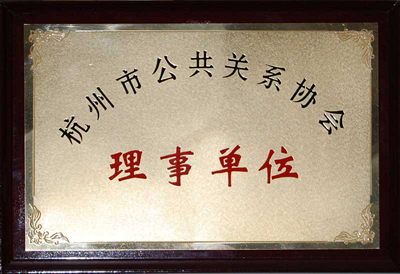 杭州市公共关系协会
理事单位